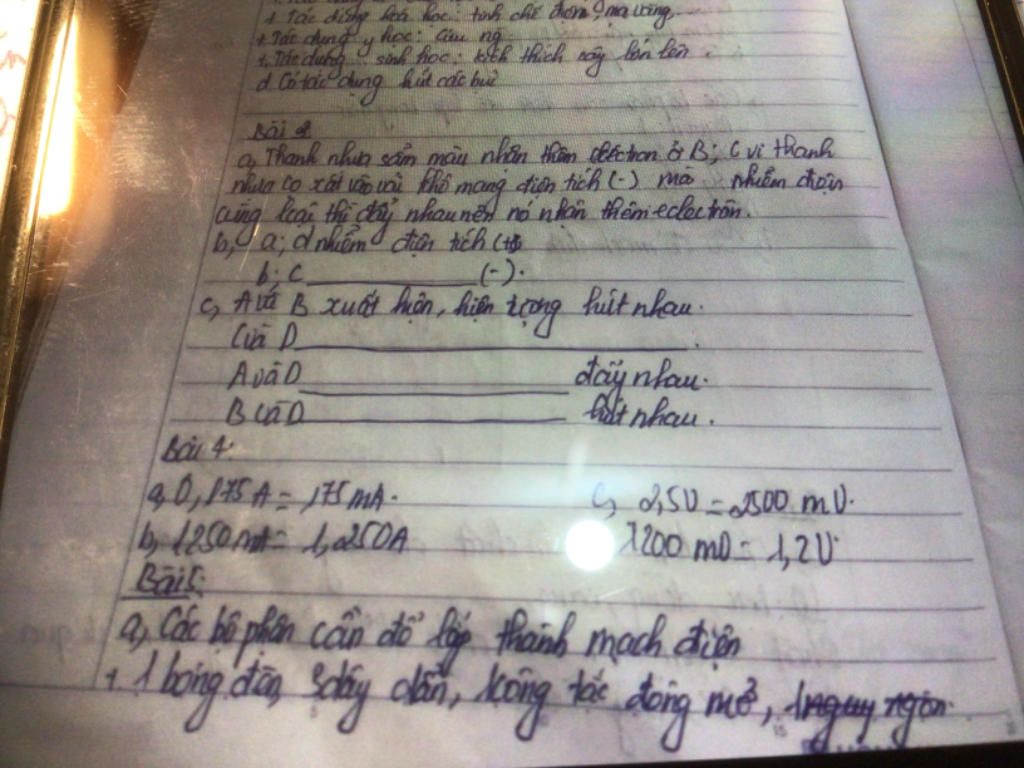 + Tác dụng hoá học: tinh chế đơn, mạ vàng,
+ Tác dụng y học: cứu ng
+. Tác dụng sinh học: kích thích cây lớn lên.
d Có tác dụng hút các bụi
Bài
a, Thanh nhựa sẫm màu nhận thêm electron ở B; C vì thanh
nhựa cọ xát vào vải khô mang điện tích (-) mà nhiễm điện
cùng loại thì đẩy nhau nên nó nhận thêm eclectrôn.
b, a; d nhiễm điện tích (+)
b; C (-).
c, A và B xuất hiện, hiện tượng hút nhau.
C và D .
A và D đẩy nhau.
B và D hút nhau.
Bài 4:
a, 0,175A = 175mA. c, 2,5V = 2500 mV.
b, 1250mA = 1,250A 1200 mV = 1,2V.
Bài 5:
a, Các bộ phận cần để lắp thành mạch điện
+. 1 bóng đèn, 3 dây dẫn, công tắc đóng mở, 1 nguy ngồn.